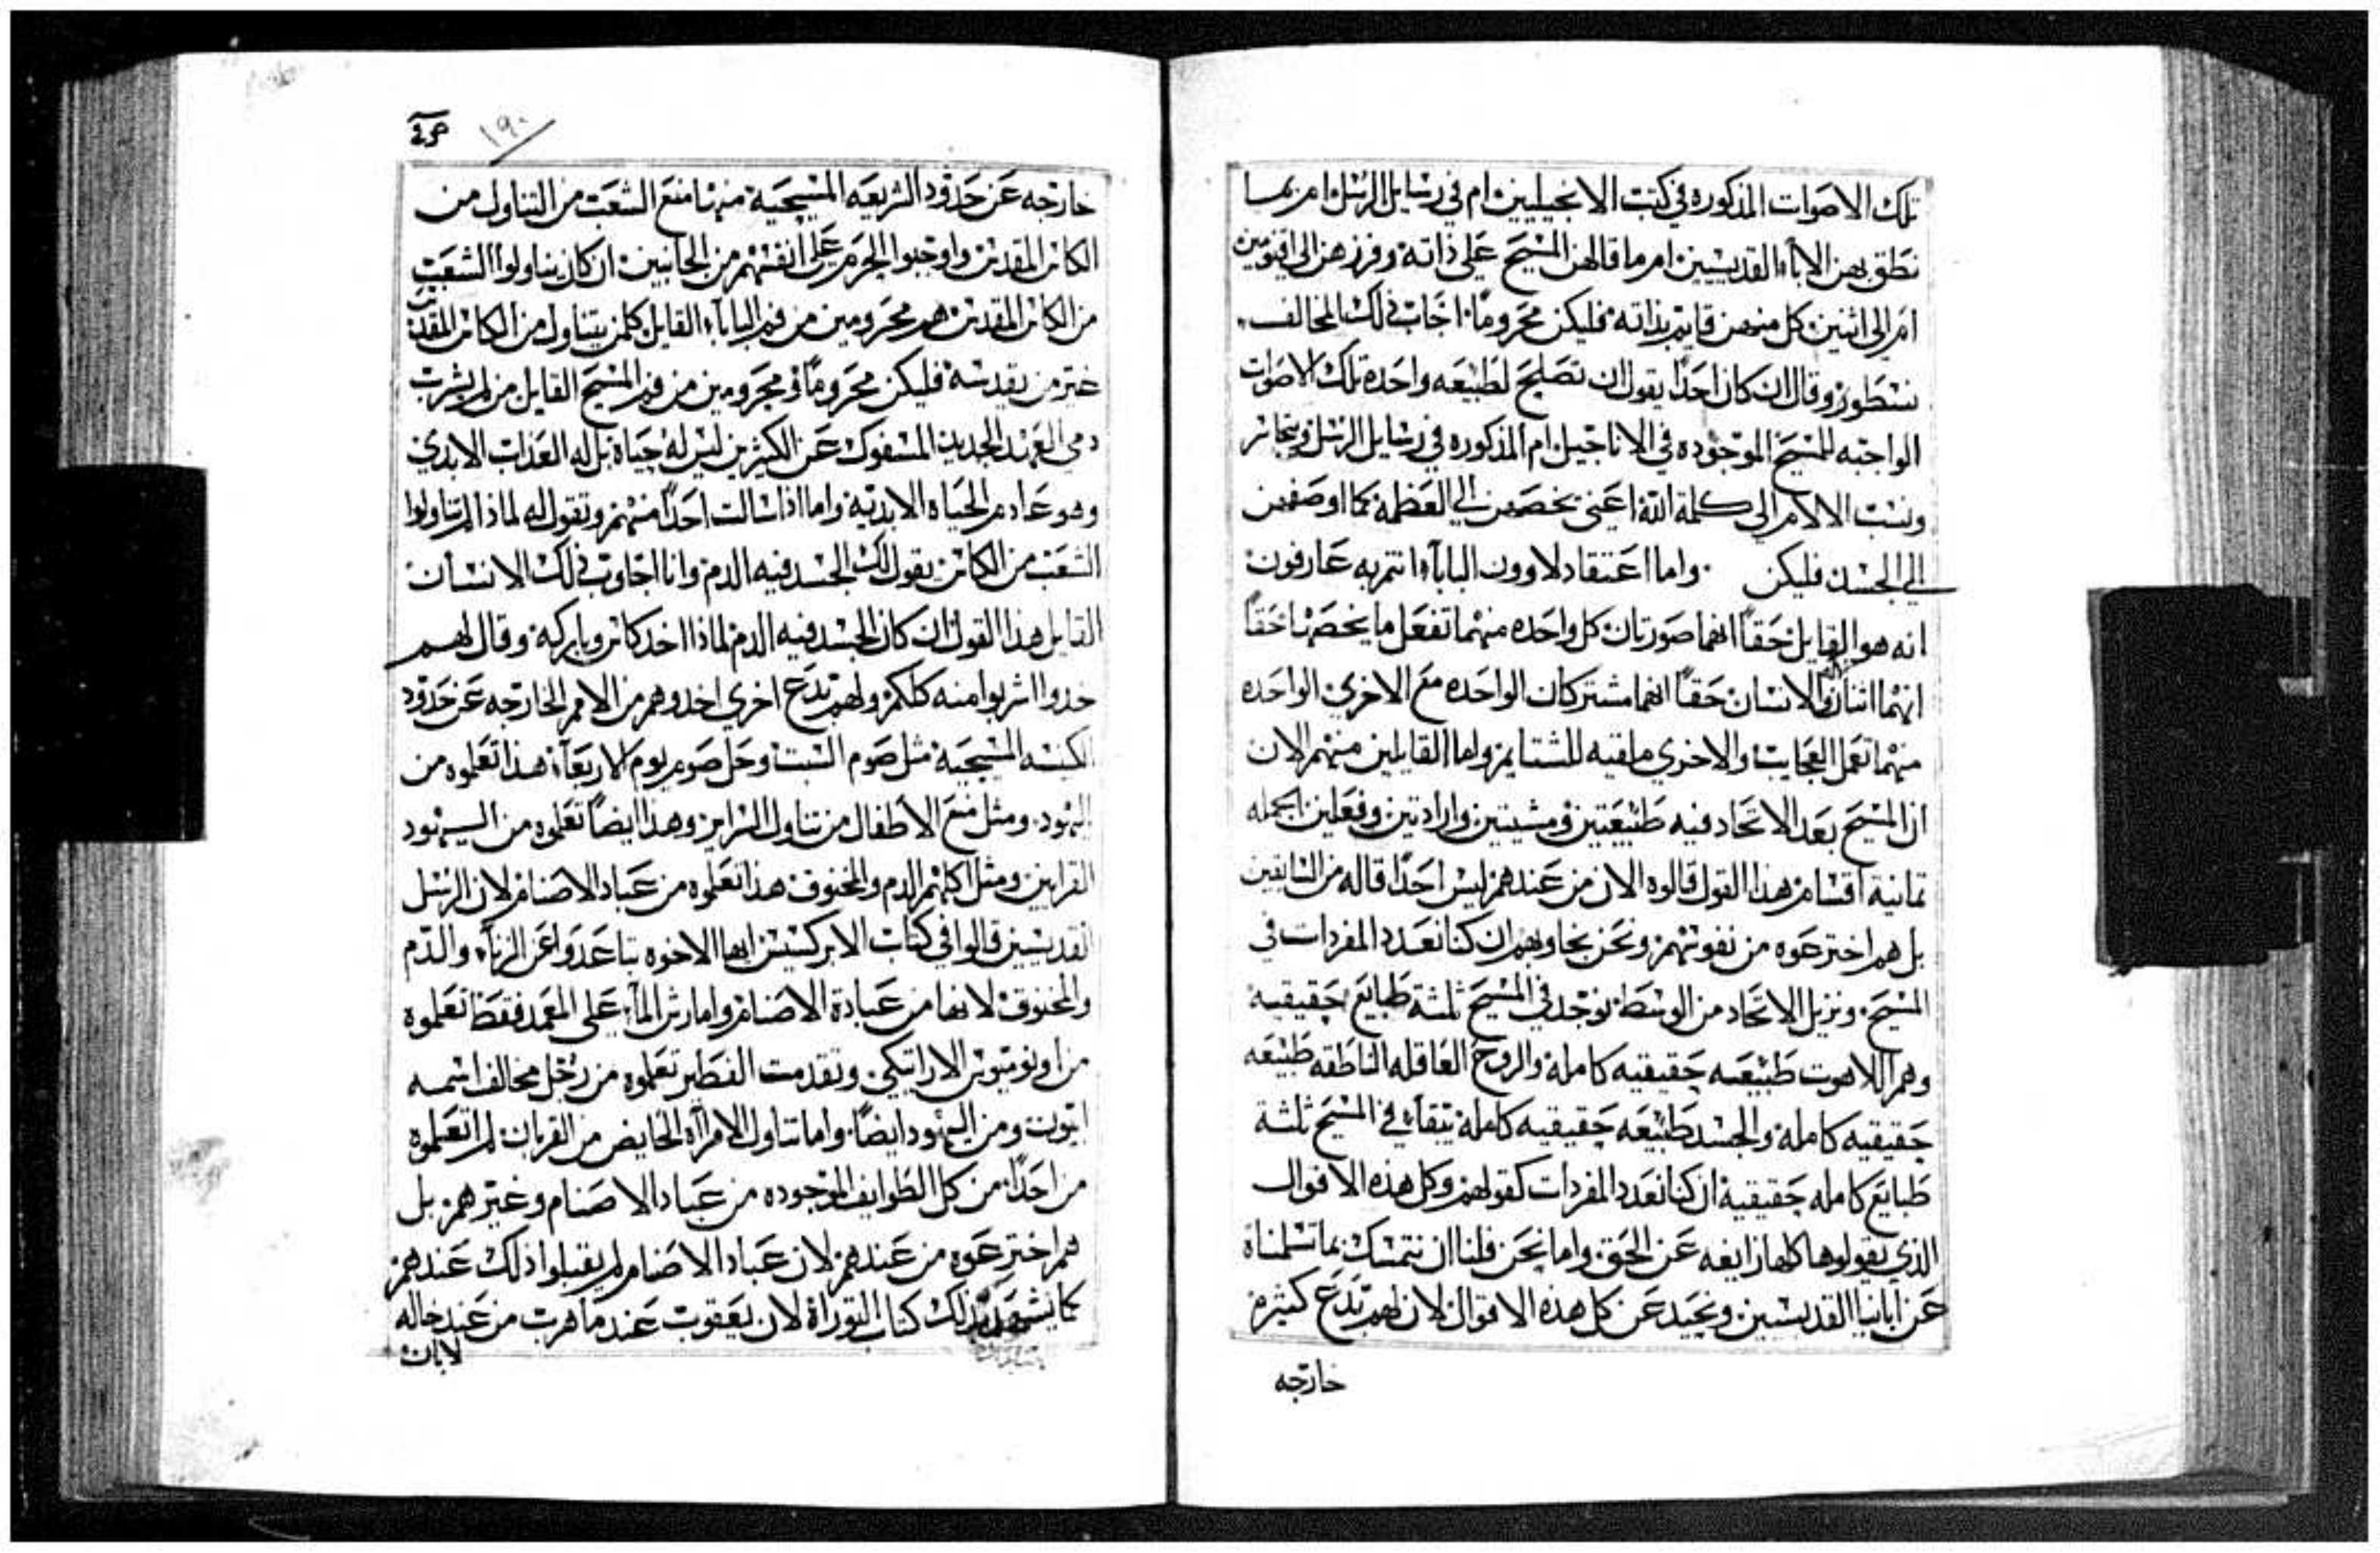 تلك الاصوات المذكوره في كتب الانجيليين ام في رسايل الرسل ام بما
نطق بهن الاباء القديسيين ام ما قالهن المسيح على ذاته وفرزهن الى اقنومين
ام الى اثنين كل منهن قايم بذاته فليكن محروماً اجاب ذلك المخالف
نسطور وقال ان كان احداً يقول ان تصلح لطبيعه واحده تلك الاصوات
الواجبه للمسيح الموجوده في الاناجيل ام المذكوره في رسايل الرسل ويتجاسر
وينسب الالام الى كلمة الله اعني يخصهن الي العظمة كما اوصفهن
الي الجسد فليكن واما اعتقاد لاوون البابآء انتم به عارفون
انه هو القايل حقاً انهما صورتان كل واحده منهما تفعل ما يخصها حقاً
انهما اثنان الاله والانسان حقاً انهما مشتركان الواحده مع الاخرى الواحده
منهما تعمل العجايب والاخري ملقيه للشتايم واما القايلين منهم الان
ان المسيح بعد الاتحاد فيه طبيعتين ومشيتين وارادتين وفعلين الجمله
تمانية اقسام هذا القول قالوه الان من عندهم ليس احداً قاله من السابقين
بل هم اخترعوه من نفوسهم ونحن نجاوبهم ان كنا نعدد المفردات في
المسيح ونزيل الاتحاد من الوسط نوجد في المسيح ثلثة طبايع حقيقيه
وهم اللاهوت طبيعه حقيقيه كامله والروح العاقله الناطقه طبيعه
حقيقيه كامله والجسد طبيعه حقيقيه كامله تبقاء في المسيح ثلثة
طبايع كامله حقيقية ان كنا نعدد المفردات كقولهم وكل هذه الاقوال
الذي يقولوها كلها زايغه عن الحق واما نحن فلنا ان نتمسك بما تسلمناه
عن ابائنا القديسين ونحيد عن كل هذه الاقوال لان لهم بدع كثيره
خارجه
١٩٠
خارجه عن حدود الشريعه المسيحية منها منع الشعب من التناول من
الكاس المقدس واوجبوا الحرم على انفسهم من الجانبين ان كان يناولوا الشعب
من الكاس المقدس هم محرومين من فم البابآء القايل كلمن يتناول من الكاس المقدس
غير من يقدسه فليكن محروماً ومحرومين من فم المسيح القايل من لم يشرب
دمي العهد الجديد المسفوك عن الكثيرين ليس له حياة بل له العذاب الابدي
وهو عادم الحياه الابدية واما اذا سالت احداً منهم وتقول له لماذا لم تناولوا
الشعب من الكاس يقول لك الجسد فيه الدم وانا اجاوب ذلك الانسان
القايل هذا القول ان كان الجسد فيه الدم لماذا اخد كاس وباركه وقال لهم
خدوا اشربوا منه كلكم ولهم بدع اخرى اخدوهم من الامم الخارجه عن حدود
الكنيسه المسيحية مثل صوم السبت وحل صوم يوم الاربعآء هذا تعلموه من
اليهود ومثل منع الاطفال من تناول السراير وهذا ايضاً تعلموه من اليهود
القرايين ومثل اكلهم الدم والمخنوق هذا تعلموه من عباد الاصنام لان الرسل
القديسين قالوا في كتاب الابركسيس ايها الاخوه تباعدوا عن الزناء والدم
والمخنوق لانها من عبادة الاصنام واما رش المآء على المعمد فقط تعلموه
من اونوميوس الاراتيكي وتقدمت الفطير تعلموه من رجل مخالف اسمه
ابيون ومن اليهود ايضاً واما تناول الامراه الحايض من القربان لم تعلموه
من احداً من كل الطوايف الموجوده من عباد الاصنام وغيرهم بل
هم اخترعوه من عندهم لان عباد الاصنام لم يقبلوا ذلك عندهم
كما يشهد بذلك كتاب التوراة لان يعقوب عند ما هرب من عند خاله
لابان